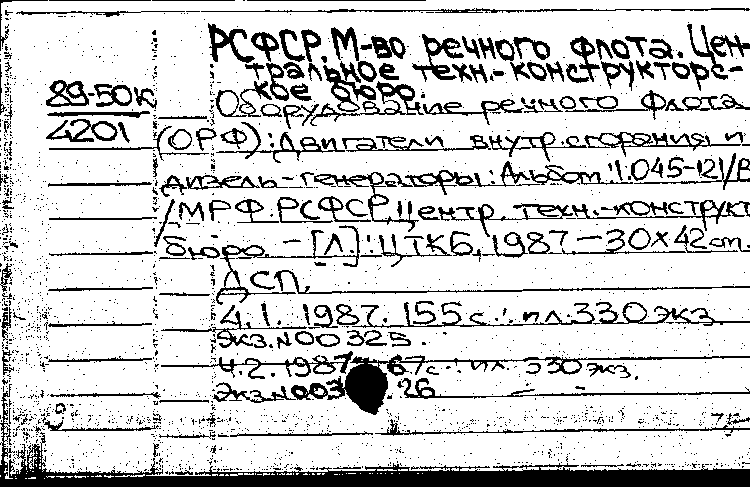 РСФСР. М-во речного флота. Цен-
тральное техн.-конструкторс-
кое бюро.
89-50к
4201
Оборудование речного флота
(ОРФ): Двигатели внутр. сгорания и
дизель-генераторы: Альбом: 1.045-121/В
/МРФ РСФСР, Центр. техн.-конструкт.
бюро. - [Л]: ЦТКБ, 1987. - 30х42 см.
ДСП.
Ч. 1. 1987. 155 с.: ил. 330 экз.
Экз. N00325.
Ч. 2. 1987. 67 с.: ил. 330 экз.
Экз. N003 26